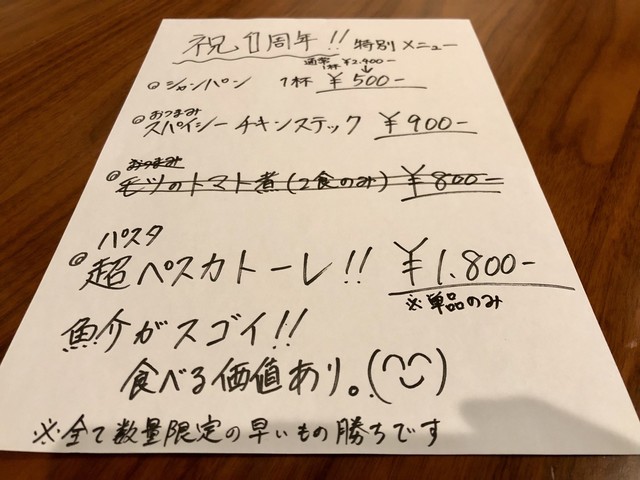 祝1周年!! 特別メニュー
通常
1杯 ¥2,400-
◎ シャンパン 1杯 ¥500-
おつまみ
◎ スパイシーチキンステック ¥900-
おつまみ
◎ モツのトマト煮(2食のみ) ¥800-
パスタ
◎ 超ペスカトーレ!! ¥1.800-
※単品のみ
魚介がスゴイ!!
食べる価値あり。(^^)
※全て数量限定の早いもの勝ちです